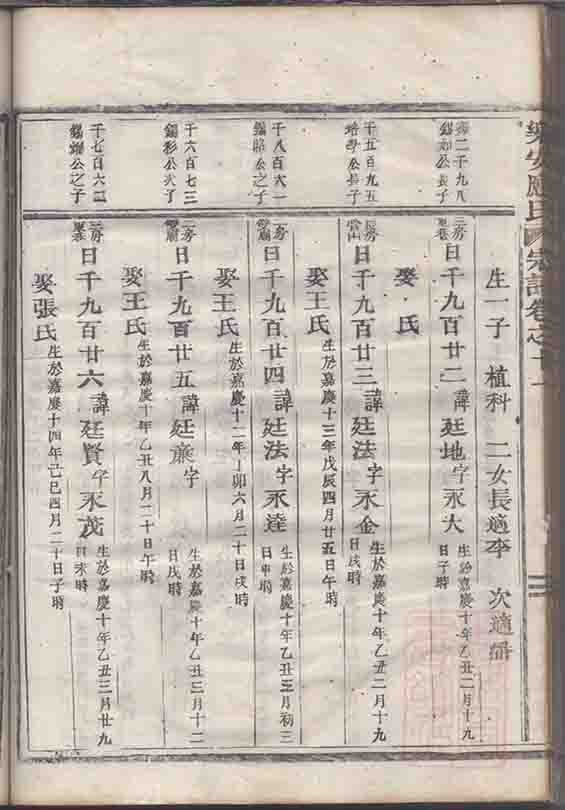 樂安應氏宗譜卷之十一
生一子 植科 二女長適李 次適
寅二千九八
錫知公長子
三房東巷日千九百廿二諱廷地字永大生於嘉慶十年乙丑二月十九
日子時
娶 氏
千五百九五
培學公長子
日千九百廿三諱廷法字永金生於嘉慶十年乙丑二月十九
日戌時
娶王氏生於嘉慶十三年戊辰四月廿五日午時
千八百六一
錫路公之子
日千九百廿四諱廷法字永達生於嘉慶十年乙丑三月初三
日申時
娶王氏生於嘉慶十二年丁卯六月二十日戌時
千六百七三
錫彩公次子
日千九百廿五諱廷廉字 生於嘉慶十年乙丑三月十二
日戌時
娶王氏生於嘉慶十年乙丑八月二十日午時
千七百六三
錫 公之子
三房東巷日千九百廿六諱廷賢字永茂生於嘉慶十年乙丑三月廿九
日未時
娶張氏生於嘉慶十四年己巳四月二十日子時